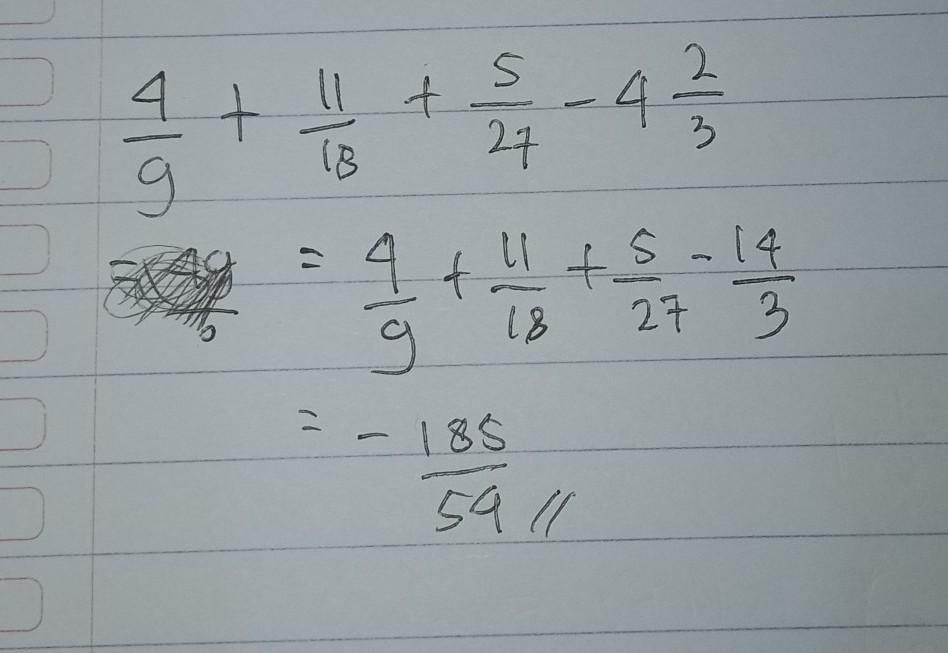 4/9 + 11/18 + 5/27 - 4 2/3
= 4/9 + 11/18 + 5/27 - 14/3
= - 185/54 //